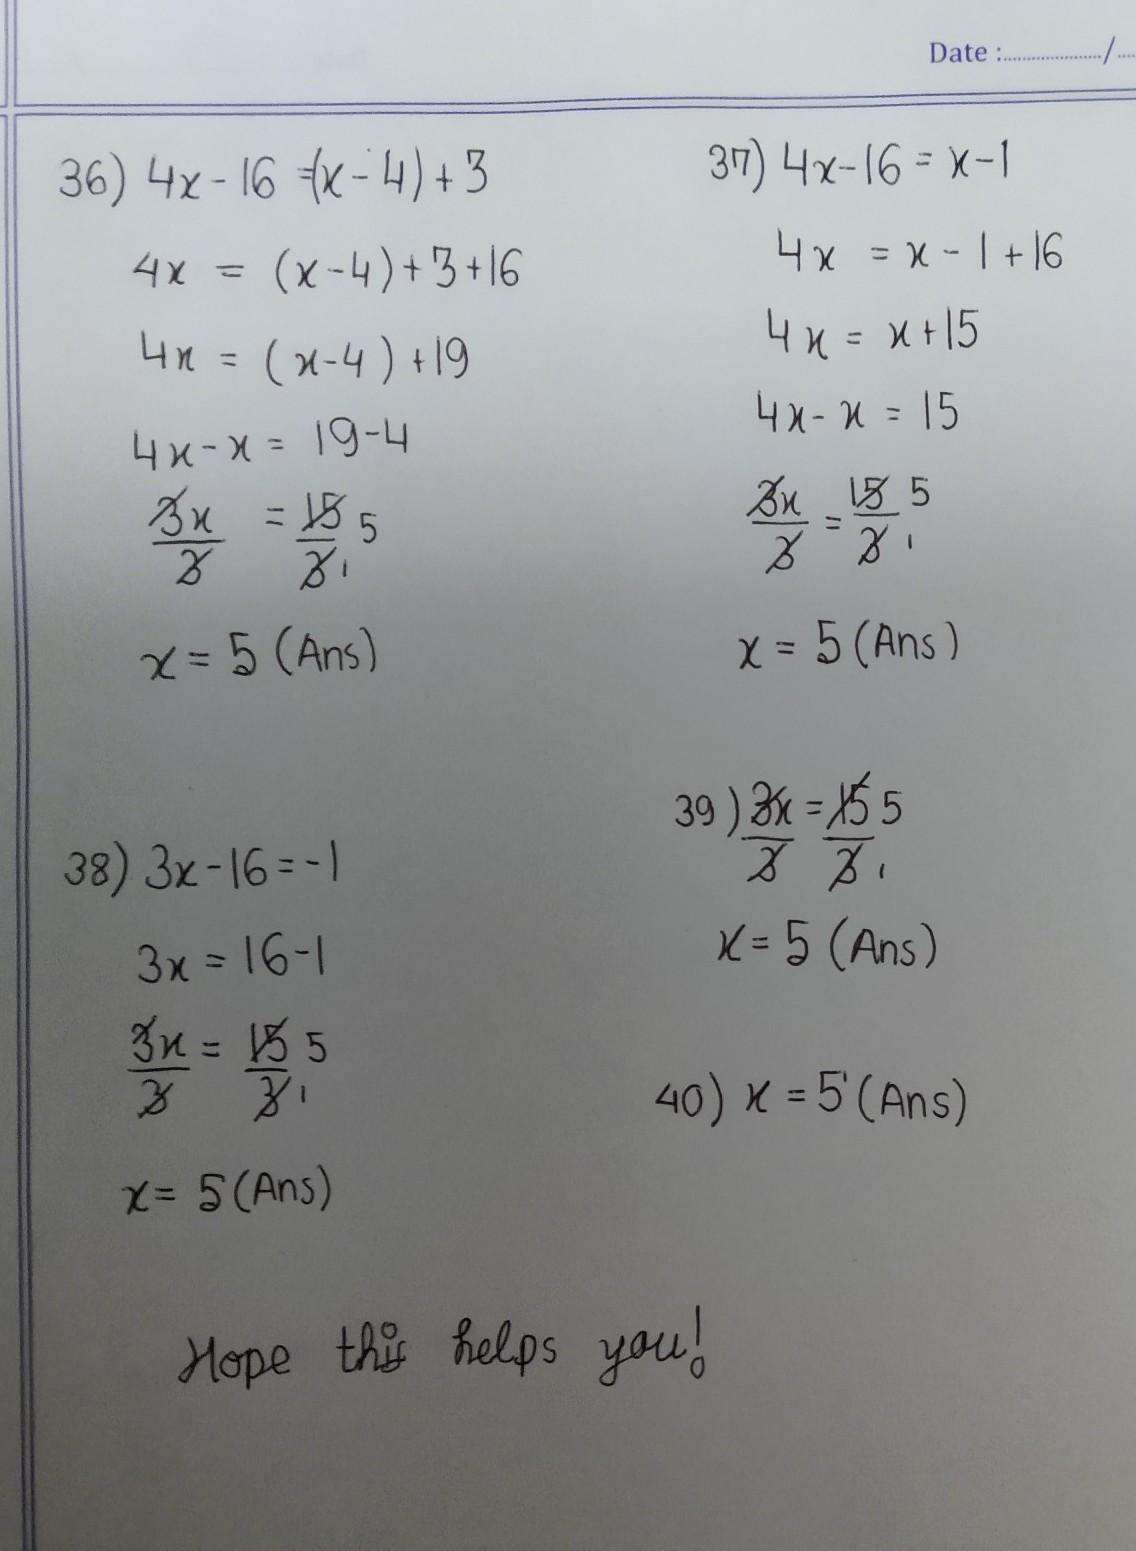 Date :................../....
36) 4x - 16 = (x - 4) + 3
4x = (x - 4) + 3 + 16
4x = (x - 4) + 19
4x - x = 19 - 4
3x/3 = 15/3 5 1
x = 5 (Ans)
37) 4x - 16 = x - 1
4x = x - 1 + 16
4x = x + 15
4x - x = 15
3x/3 = 15/3 5 1
x = 5 (Ans)
38) 3x - 16 = -1
3x = 16 - 1
3x/3 = 15/3 5 1
x = 5 (Ans)
39) 3x/3 = 15/3 5 1
x = 5 (Ans)
40) x = 5 (Ans)
Hope this helps you!